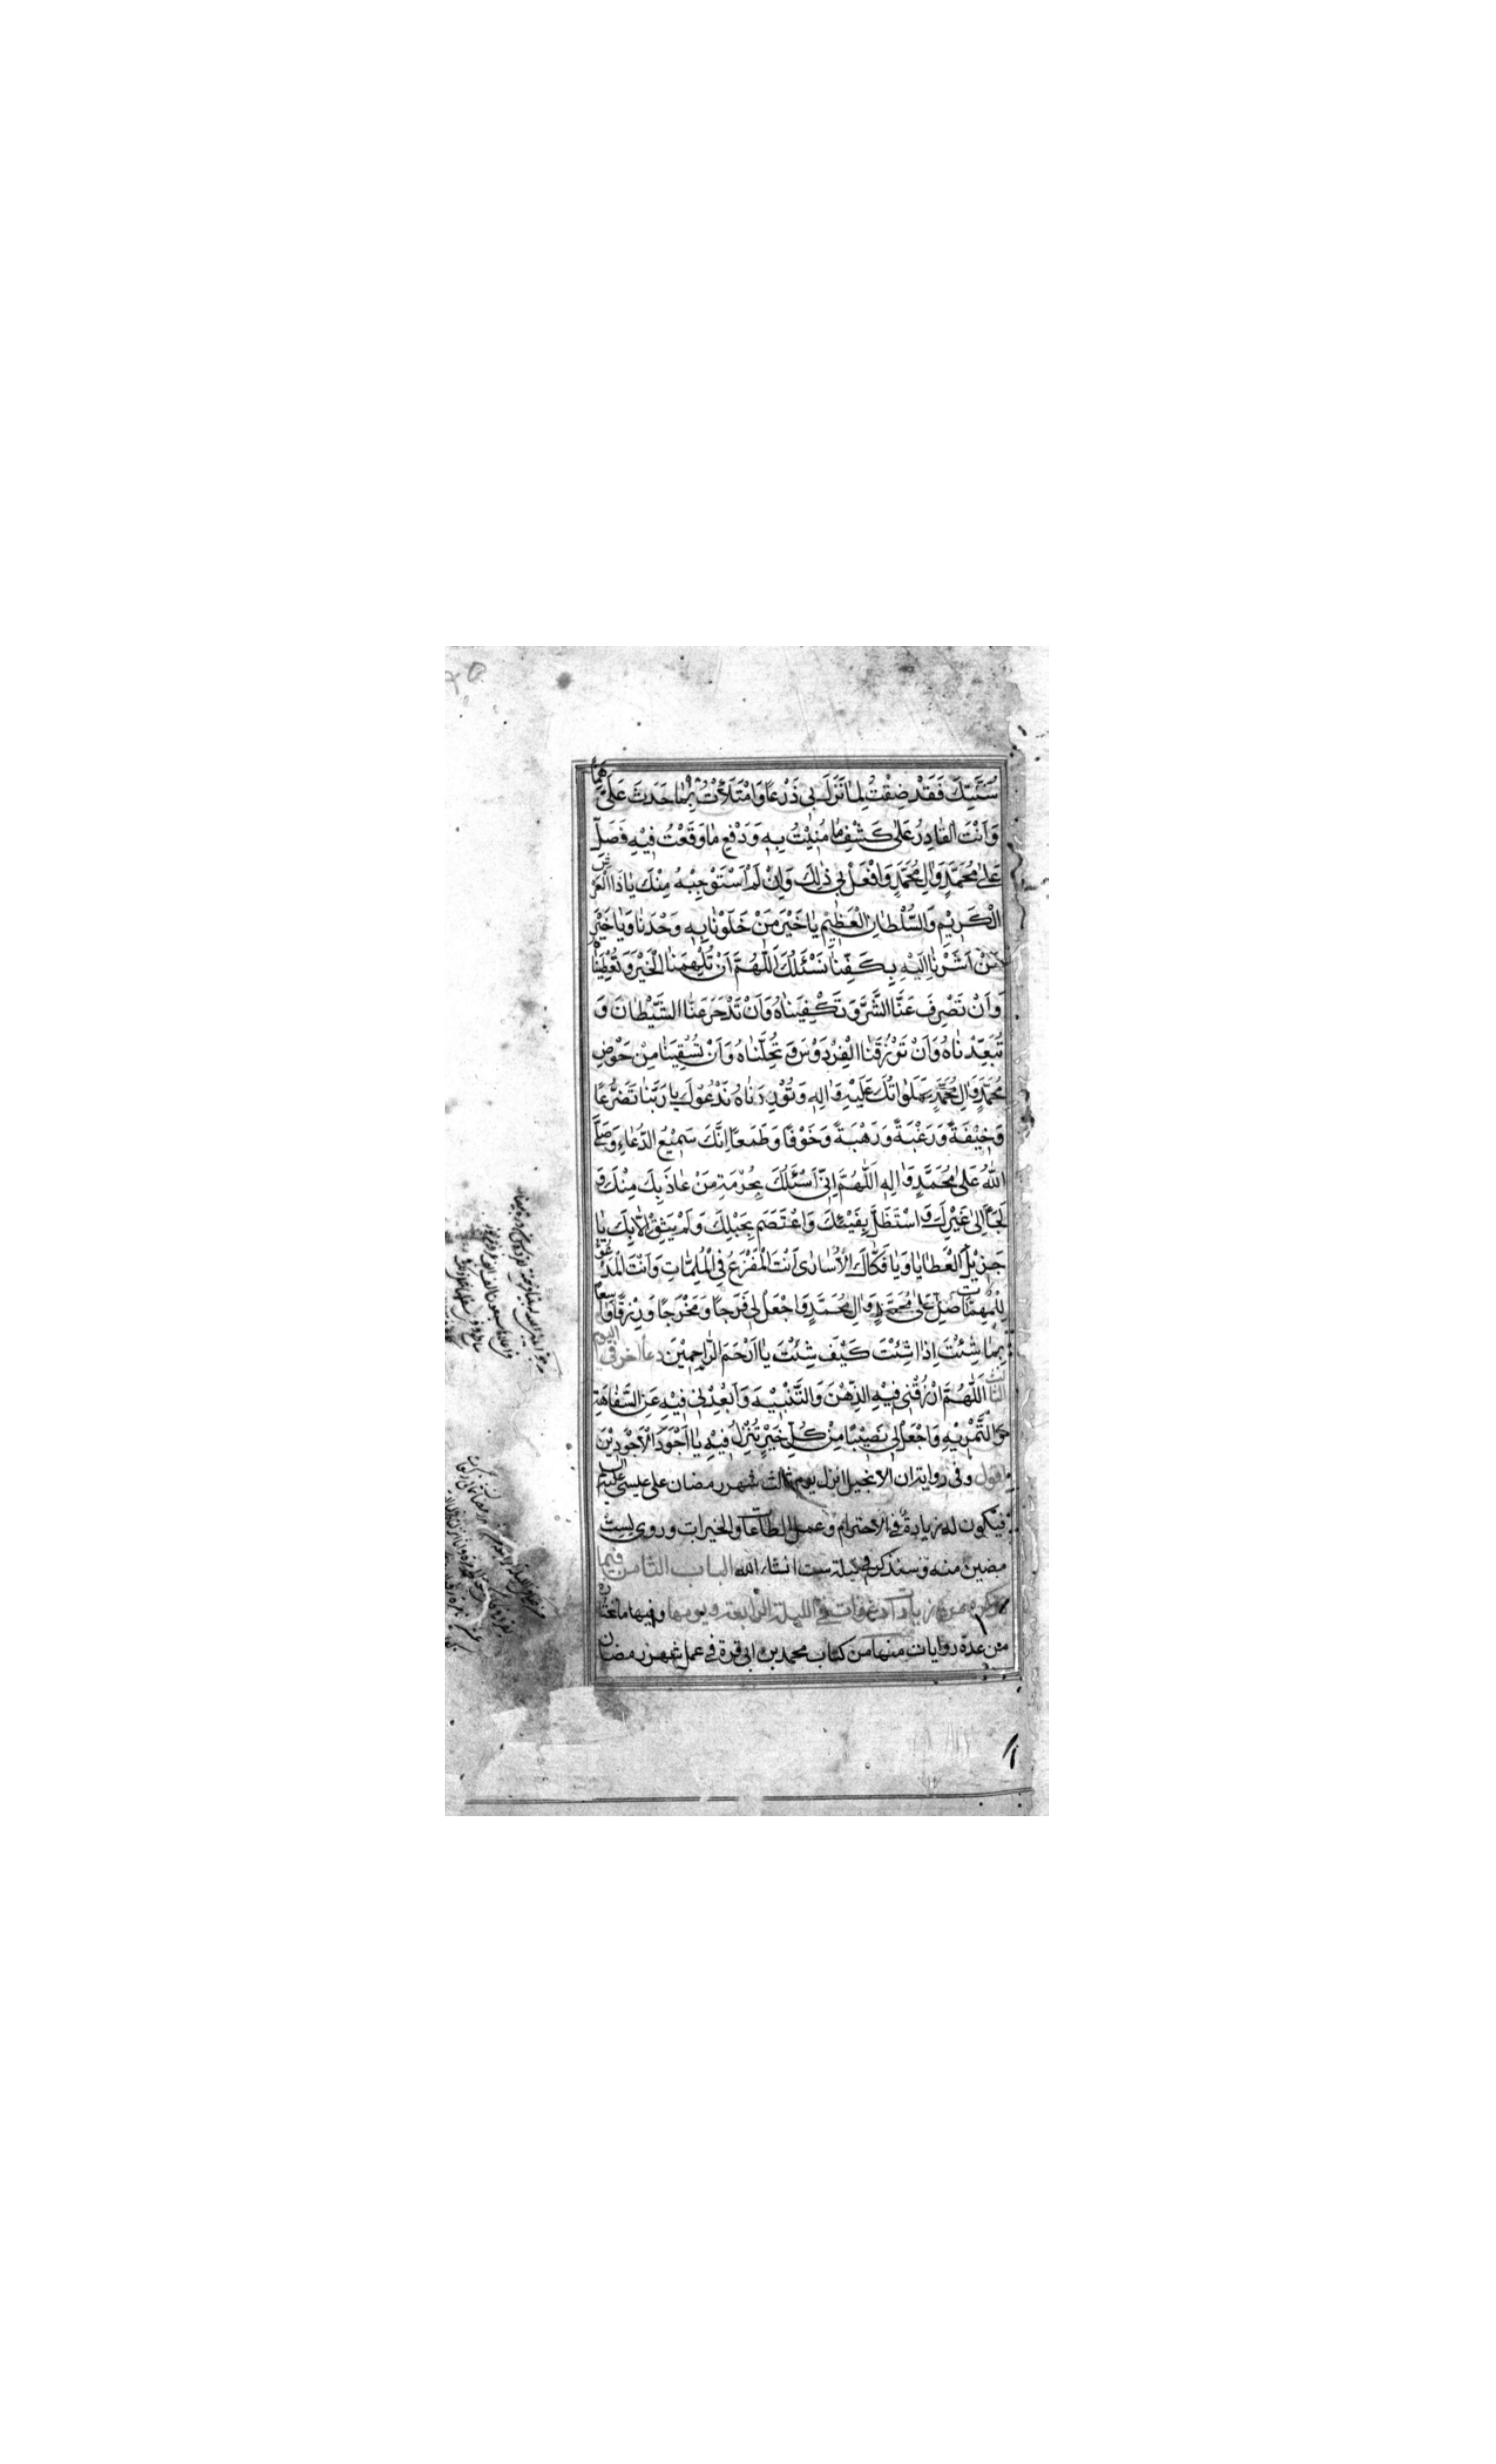 سُنَّتِكَ فَقَدْ ضِقْتُ لِمٰا نَزَلَ بی ذَرْعًا وَامْتَلَأْتُ بِمٰا حَدَثَ عَلَیَّ هَمًّا
وَاَنْتَ الْقٰادِرُ عَلٰى كَشْفِ مٰا مُنِیْتُ بِهِ وَدَفْعِ مٰا وَقَعْتُ فِیْهِ فَصَلِّ
عَلٰى مُحَمَّدٍ وَاٰلِ مُحَمَّدٍ وَافْعَلْ بی ذٰلِكَ وَاِنْ لَمْ اَسْتَوْجِبْهُ مِنْكَ یٰا ذَا الْعَرْشِ
الْكَرِیْمِ وَالسُّلْطٰانِ الْعَظِیْمِ یٰا خَیْرَ مَنْ خَلَوْنٰا بِهِ وَحْدَنٰا وَیٰا خَیْرَ
مَنْ اَشَرْنٰا اِلَیْهِ بِكَفِّنٰا نَسْئَلُكَ اَللّٰهُمَّ اَنْ تُلْهِمَنَا الْخَیْرَ وَتُعْطِیَنٰاهُ
وَاَنْ تَصْرِفَ عَنَّا الشَّرَّ وَ تَكْفِیَنٰاهُ وَاَنْ تَدْحَرَ عَنَّا الشَّیْطٰانَ وَ
تُبَعِّدْنٰاهُ وَاَنْ تَرْزُقَنَا الْفِرْدَوْسَ وَ تُحِلَّنٰاهُ وَاَنْ تُسْقِیَنٰا مِنْ حَوْضِ
مُحَمَّدٍ وَاٰلِ مُحَمَّدٍ صَلَوٰاتُكَ عَلَیْهِ وَاٰلِهِ وَ تُوْرِدَنٰاهُ نَدْعُوْكَ یٰا رَبَّنٰا تَضَرُّعًا
وَخِیْفَةً وَرَغْبَةً وَرَهْبَةً وَخَوْفًا وَطَمَعًا اِنَّكَ سَمِیْعُ الدُّعٰاءِ وَصَلَّى
اللّٰهُ عَلٰى مُحَمَّدٍ وَاٰلِهِ اَللّٰهُمَّ اِنّی اَسْئَلُكَ بِحُرْمَةِ مَنْ عٰاذَ بِكَ مِنْكَ وَ
لَجَأَ اِلٰى غَیْرِكَ وَاسْتَظَلَّ بِفَیْئِكَ وَاعْتَصَمَ بِحَبْلِكَ وَلَمْ یَثِقْ اِلّٰا بِكَ یٰا
جَزِیْلَ الْعَطٰایٰا وَیٰا فَكّٰاكَ الْاُسٰارٰى اَنْتَ الْمَفْزَعُ فِی الْمُلِمّٰاتِ وَاَنْتَ الْمَدْعُوُّ
لِلْمُهِمّٰاتِ صَلِّ عَلٰى مُحَمَّدٍ وَاٰلِ مُحَمَّدٍ وَاجْعَلْ لی فَرَجًا وَمَخْرَجًا وَرِزْقًا وٰاسِعًا
بِمٰا شِئْتَ اِذٰا شِئْتَ كَیْفَ شِئْتَ یٰا اَرْحَمَ الرّٰاحِمِیْنَ دعاء اخر فی الیوم
الثالث اَللّٰهُمَّ ارْزُقْنی فِیْهِ الذِّهْنَ وَالتَّنْبِیْهَ وَاَبْعِدْنی فِیْهِ عَنِ السَّفٰاهَةِ
وَالتَّمْوِیْهِ وَاجْعَلْ لی نَصِیْبًا مِنْ كُلِّ خَیْرٍ تُنْزِلُ فِیْهِ یٰا اَجْوَدَ الْاَجْوَدِیْنَ
اقول وفی روایة ان الانجیل انزل یوم ثالث شهر رمضان علی عیسی علیه السلام
فیكون له زیادة فی الاحترام وعمل الطاعات والخیرات وروی لست
مضین منه وسنذكره فی لیلة ست انشاء الله الباب الثامن فیما
نذكره من زیادة دعوات فی اللیلة الرابعة ویومها وفیها ما نختاره
من عدة روایات منها من كتاب محمد بن ابی قرة فی عمل شهر رمضان